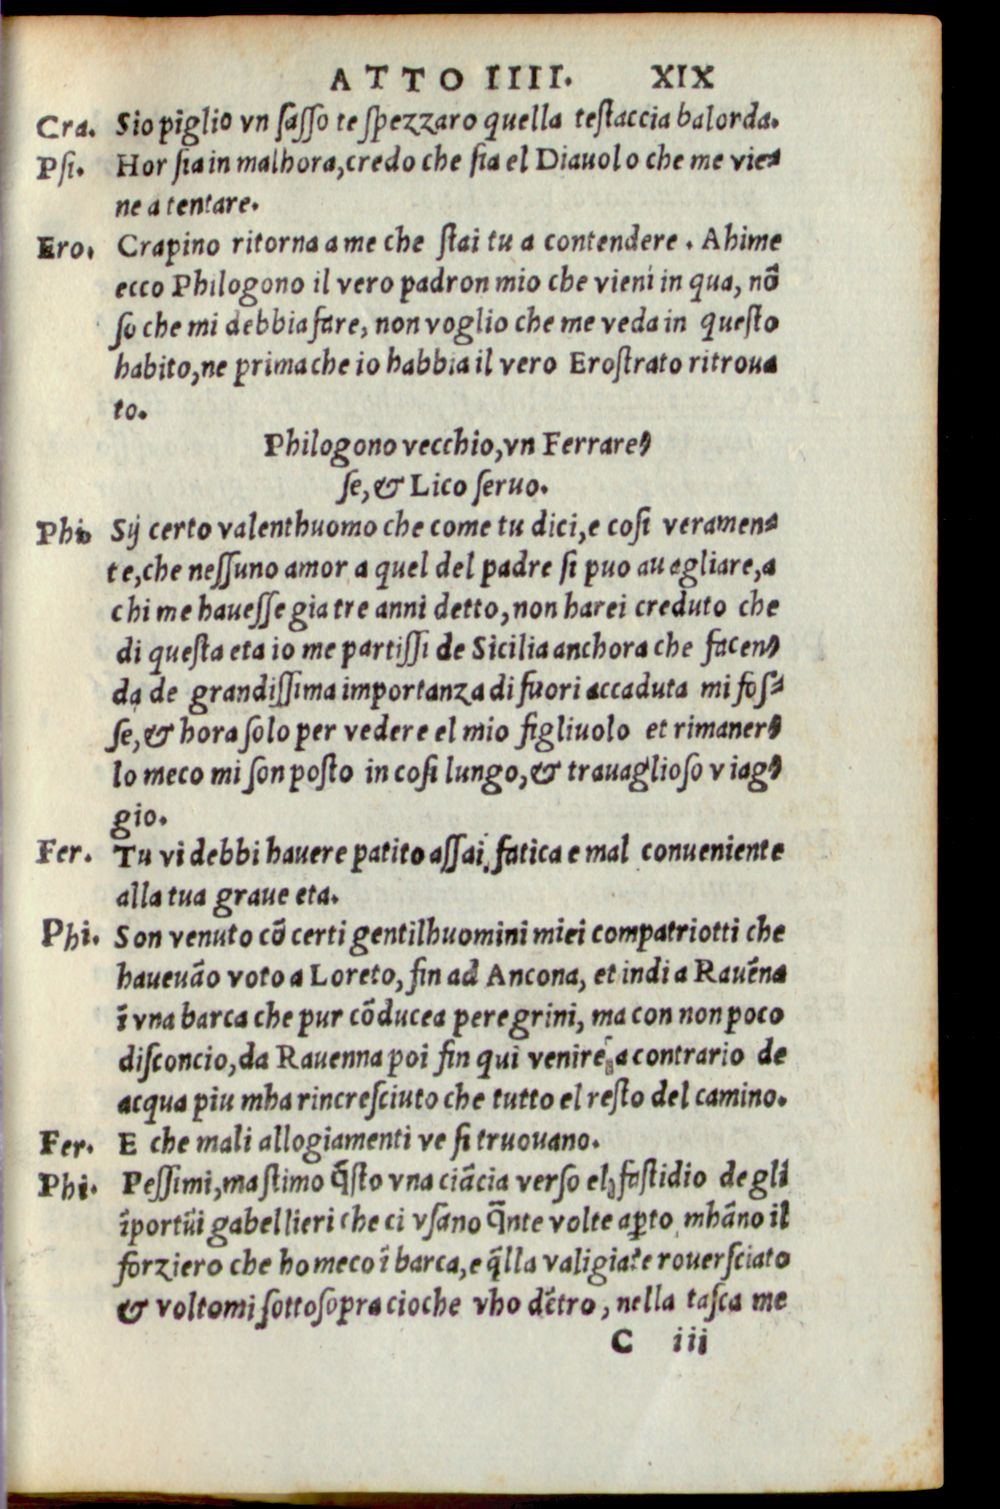 ATTO IIII. XIX
Cra. Sio piglio vn ſaſſo te ſpezzaro quella teſtaccia balorda.
Pſi. Hor ſia in malhora, credo che ſia el Diauolo che me vie-
ne a tentare.
Ero. Crapino ritorna a me che ſtai tu a contendere. Ahime
ecco Philogono il vero padron mio che vieni in qua, nõ
ſo che mi debbia fare, non voglio che me veda in queſto
habito, ne prima che io habbia il vero Eroſtrato ritroua
to.
Philogono vecchio, vn Ferrare-
ſe, & Lico ſeruo.
Phi. Sij certo valenthuomo che come tu dici, e coſi veramen-
te, che neſſuno amor a quel del padre ſi puo auagliare, a
chi me haueſſe gia tre anni detto, non harei creduto che
di queſta eta io me partiſſi de Sicilia anchora che facen-
da de grandiſſima importanza di fuori accaduta mi foſ-
ſe, & hora ſolo per vedere el mio figliuolo et rimener-
lo meco mi ſon poſto in coſi lungo, & trauaglioſo viag-
gio.
Fer. Tu vi debbi hauere patito aſſai fatica e mal conueniente
alla tua graue eta.
Phi. Son venuto cõ certi gentilhuomini miei compatriotti che
haueuão voto a Loreto, fin ad Ancona, et indi a Rauẽna
ĩ vna barca che pur cõducea peregrini, ma con non poco
diſconcio, da Rauenna poi fin qui venire a contrario de
acqua piu mha rincreſciuto che tutto el reſto del camino.
Fer. E che mali allogiamenti ve ſi truouano.
Phi. Peſſimi, ma ſtimo q̃ſto vna ciãcia verſo el faſtidio de gli
ĩportũi gabellieri che ci vſano q̃nte volte apto mhãno il
forziero che ho meco ĩ barca, e q̃lla valigia te rouerſciato
& voltomi ſottoſopra cioche vho dẽtro, nella taſca me
C iii